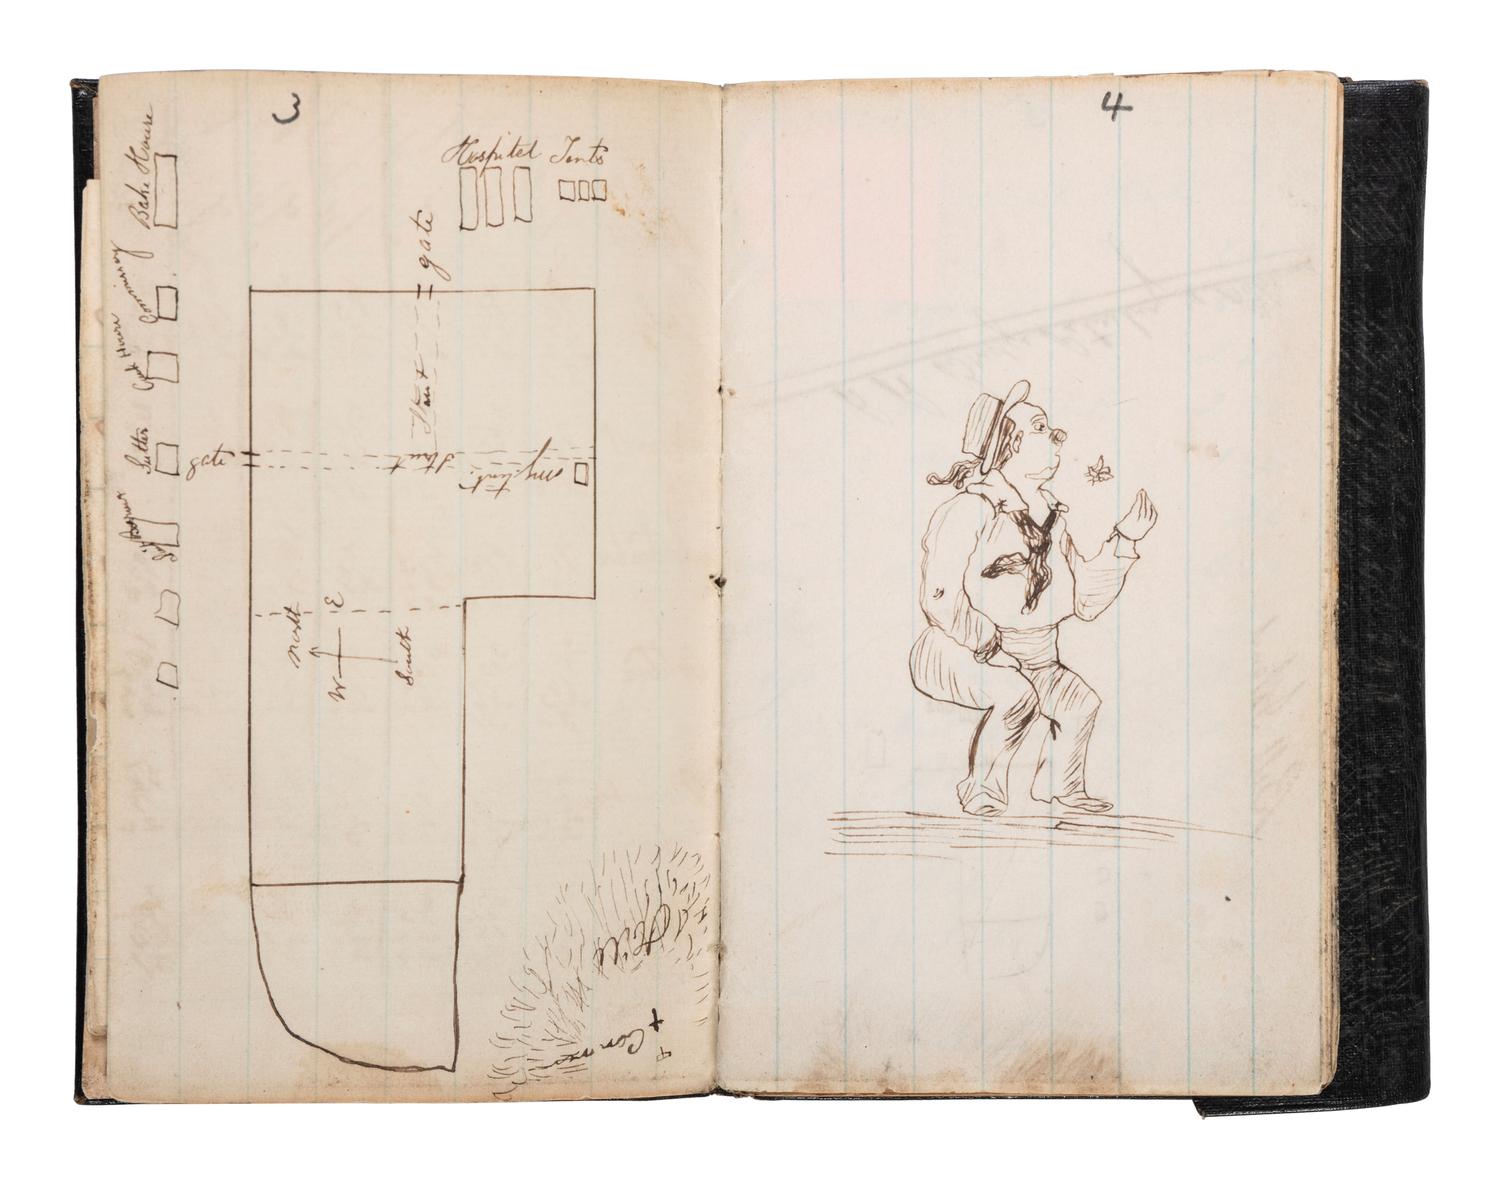 3
Bake House
Hospitel Tents
gate
Commissary
Cook House
Street
Sutler
gate
Street
my tent
North
E
W
South
Hill
Cannon
4